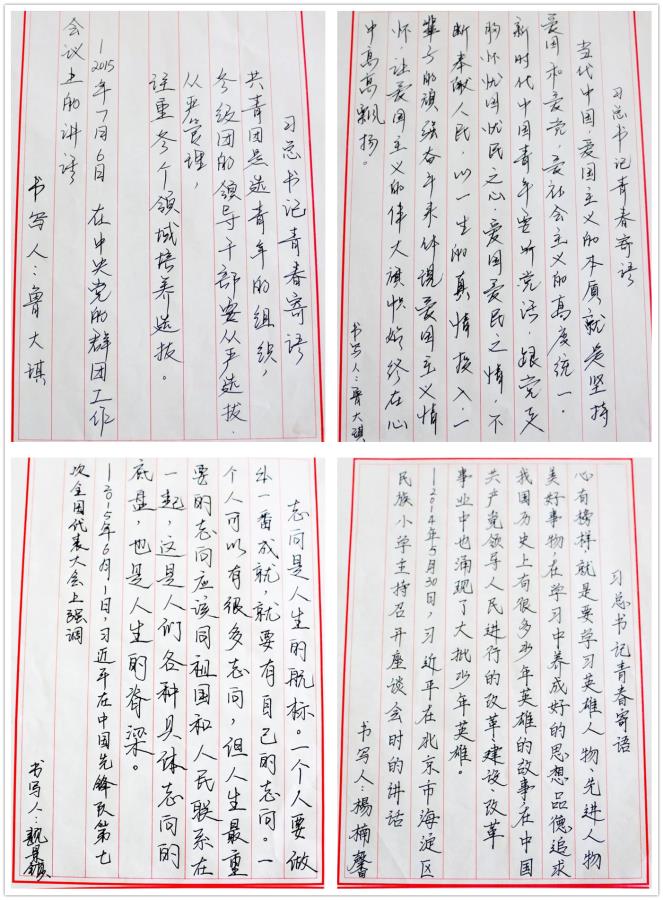 习总书记青春寄语
共青团是选青年的组织，
各级团的领导干部要从严选拔，
从严管理，
注重各个领域培养选拔。
-2015年7月6日 在中央党的群团工作
会议上的讲话
书写人：鲁大琪
习总书记青春寄语
当代中国，爱国主义的本质就是坚持
爱国和爱党、爱社会主义的高度统一。
新时代中国青年要听党话、跟党走
胸怀忧国忧民之心、爱国爱民之情，不
断奉献人民，以一生的真情投入、一
辈子的顽强奋斗来体现爱国主义情
怀，让爱国主义的伟大旗帜始终在心
中高高飘扬。
书写人：鲁大琪
志向是人生的航标。一个人要做
出一番成就，就要有自己的志向。一
个人可以有很多志向，但人生最重
要的志向应该同祖国和人民联系在
一起，这是人们各种具体志向的
底盘，也是人生的脊梁。
-2015年6月1日，习近平在中国先锋队第七
次全国代表大会上强调
书写人：
习总书记青春寄语
心有榜样，就是要学习英雄人物、先进人物
美好事物，在学习中养成好的思想品德追求
我国历史上有很多少年英雄的故事，在中国
共产党领导人民进行的改革、建设、改革
事业中也涌现了大批少年英雄。
-2014年5月30日，习近平在北京市海淀区
民族小学主持召开座谈会时的讲话
书写人：杨楠馨